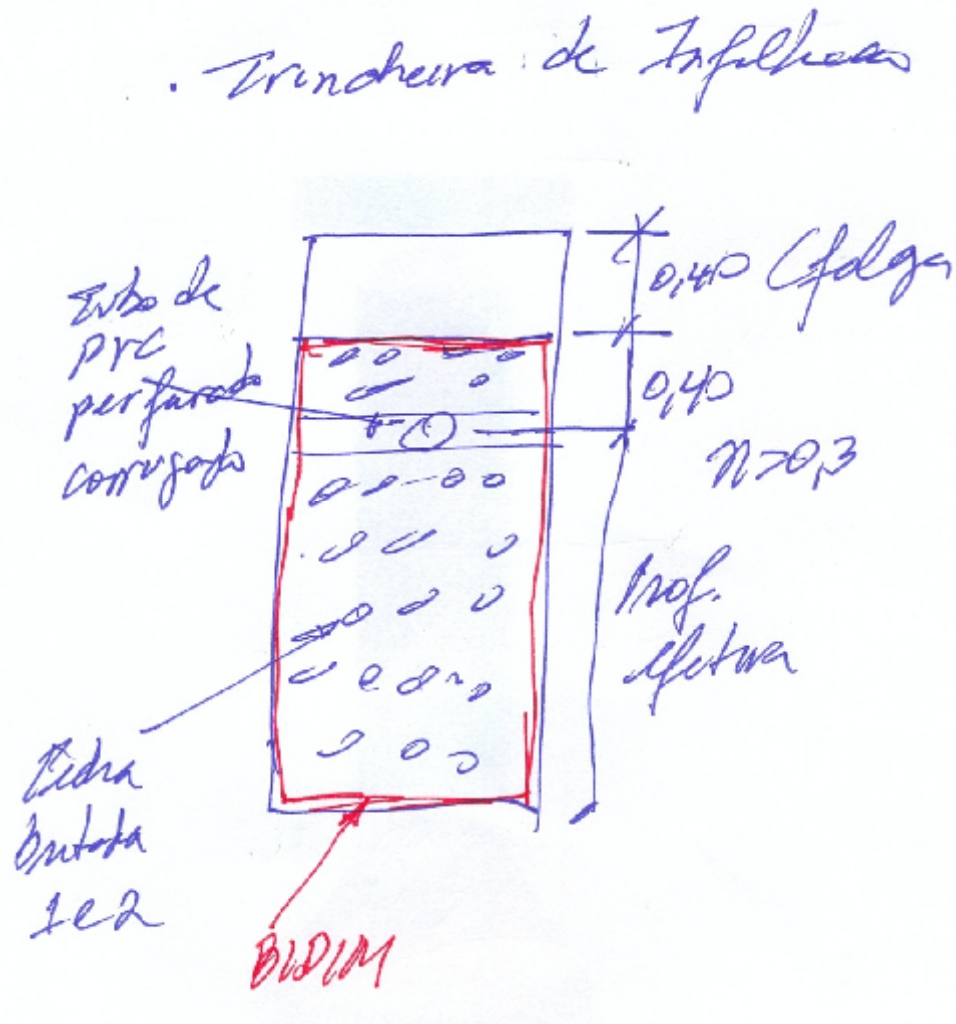 . Trincheira de Infiltracao
0,40 (folga
Tubo de
PVC
perfurado
corrugado
0,40
n>0,3
Prof.
efetiva
Pedra
Britada
1e2
BIDIM